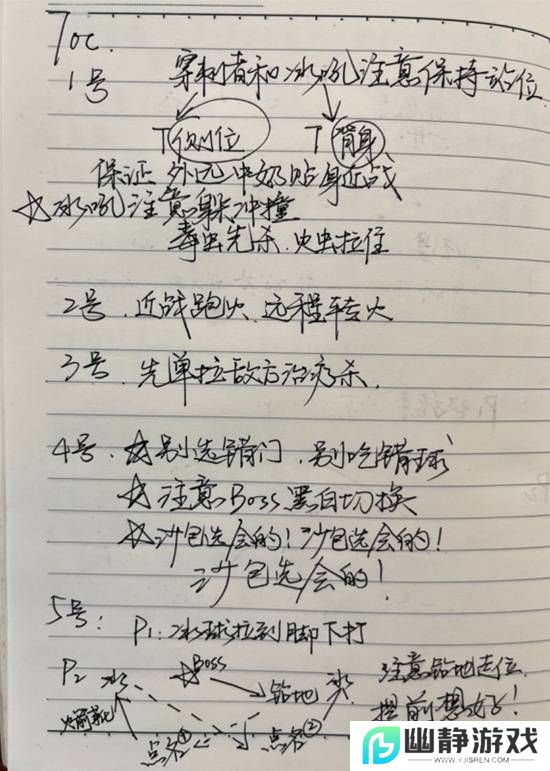 Toc.
1号 穿刺者和冰吼注意保持站位
T侧位 T背身
保证外远中奶贴身近战
☆冰吼注意躲冲撞
毒虫先杀、火虫拉住
2号、近战跑火、远程转火
3号、先单拉敌方治疗杀.
4号、☆别选错门、别吃错球
☆注意Boss黑白切换
☆沙包选会的!沙包选会的!
沙包选会的!
5号: P1:冰球拉到脚下打
P2 冰 ☆Boss 钻地 冰 注意钻地走位
火箭靴 点名① 点名② 提前想好!
幽静游戏
WWW.YJISREN.COM